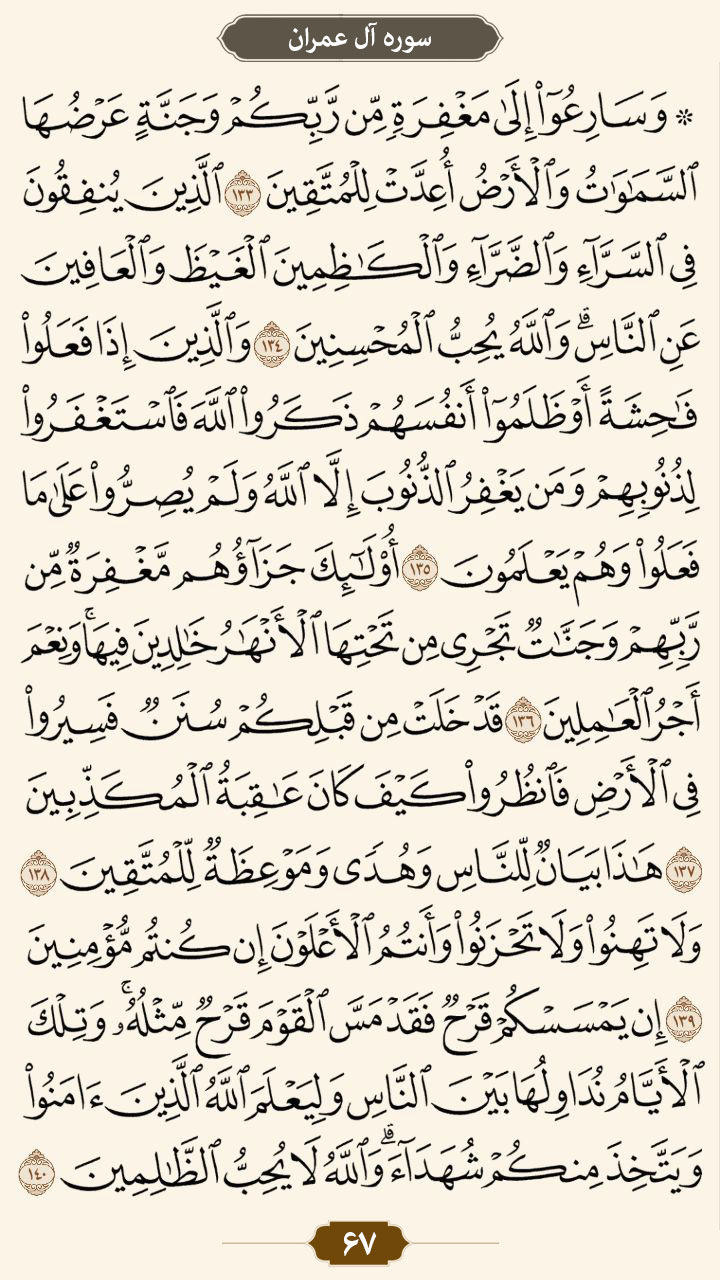 سوره آل عمران
۞ وَسَارِعُوٓا۟ إِلَىٰ مَغْفِرَةٍ مِّن رَّبِّكُمْ وَجَنَّةٍ عَرْضُهَا
ٱلسَّمَٰوَٰتُ وَٱلْأَرْضُ أُعِدَّتْ لِلْمُتَّقِينَ ١٣٣ ٱلَّذِينَ يُنفِقُونَ
فِى ٱلسَّرَّآءِ وَٱلضَّرَّآءِ وَٱلْكَٰظِمِينَ ٱلْغَيْظَ وَٱلْعَافِينَ
عَنِ ٱلنَّاسِ ۗ وَٱللَّهُ يُحِبُّ ٱلْمُحْسِنِينَ ١٣٤ وَٱلَّذِينَ إِذَا فَعَلُوا۟
فَٰحِشَةً أَوْ ظَلَمُوٓا۟ أَنفُسَهُمْ ذَكَرُوا۟ ٱللَّهَ فَٱسْتَغْفَرُوا۟
لِذُنُوبِهِمْ وَمَن يَغْفِرُ ٱلذُّنُوبَ إِلَّا ٱللَّهُ وَلَمْ يُصِرُّوا۟ عَلَىٰ مَا
فَعَلُوا۟ وَهُمْ يَعْلَمُونَ ١٣٥ أُو۟لَٰٓئِكَ جَزَآؤُهُم مَّغْفِرَةٌ مِّن
رَّبِّهِمْ وَجَنَّٰتٌ تَجْرِى مِن تَحْتِهَا ٱلْأَنْهَٰرُ خَٰلِدِينَ فِيهَا ۚ وَنِعْمَ
أَجْرُ ٱلْعَٰمِلِينَ ١٣٦ قَدْ خَلَتْ مِن قَبْلِكُمْ سُنَنٌ فَسِيرُوا۟
فِى ٱلْأَرْضِ فَٱنظُرُوا۟ كَيْفَ كَانَ عَٰقِبَةُ ٱلْمُكَذِّبِينَ
١٣٧ هَٰذَا بَيَانٌ لِّلنَّاسِ وَهُدًى وَمَوْعِظَةٌ لِّلْمُتَّقِينَ ١٣٨
وَلَا تَهِنُوا۟ وَلَا تَحْزَنُوا۟ وَأَنتُمُ ٱلْأَعْلَوْنَ إِن كُنتُم مُّؤْمِنِينَ
١٣٩ إِن يَمْسَسْكُمْ قَرْحٌ فَقَدْ مَسَّ ٱلْقَوْمَ قَرْحٌ مِّثْلُهُۥ ۚ وَتِلْكَ
ٱلْأَيَّامُ نُدَاوِلُهَا بَيْنَ ٱلنَّاسِ وَلِيَعْلَمَ ٱللَّهُ ٱلَّذِينَ ءَامَنُوا۟
وَيَتَّخِذَ مِنكُمْ شُهَدَآءَ ۗ وَٱللَّهُ لَا يُحِبُّ ٱلظَّٰلِمِينَ ١٤٠
۶۷